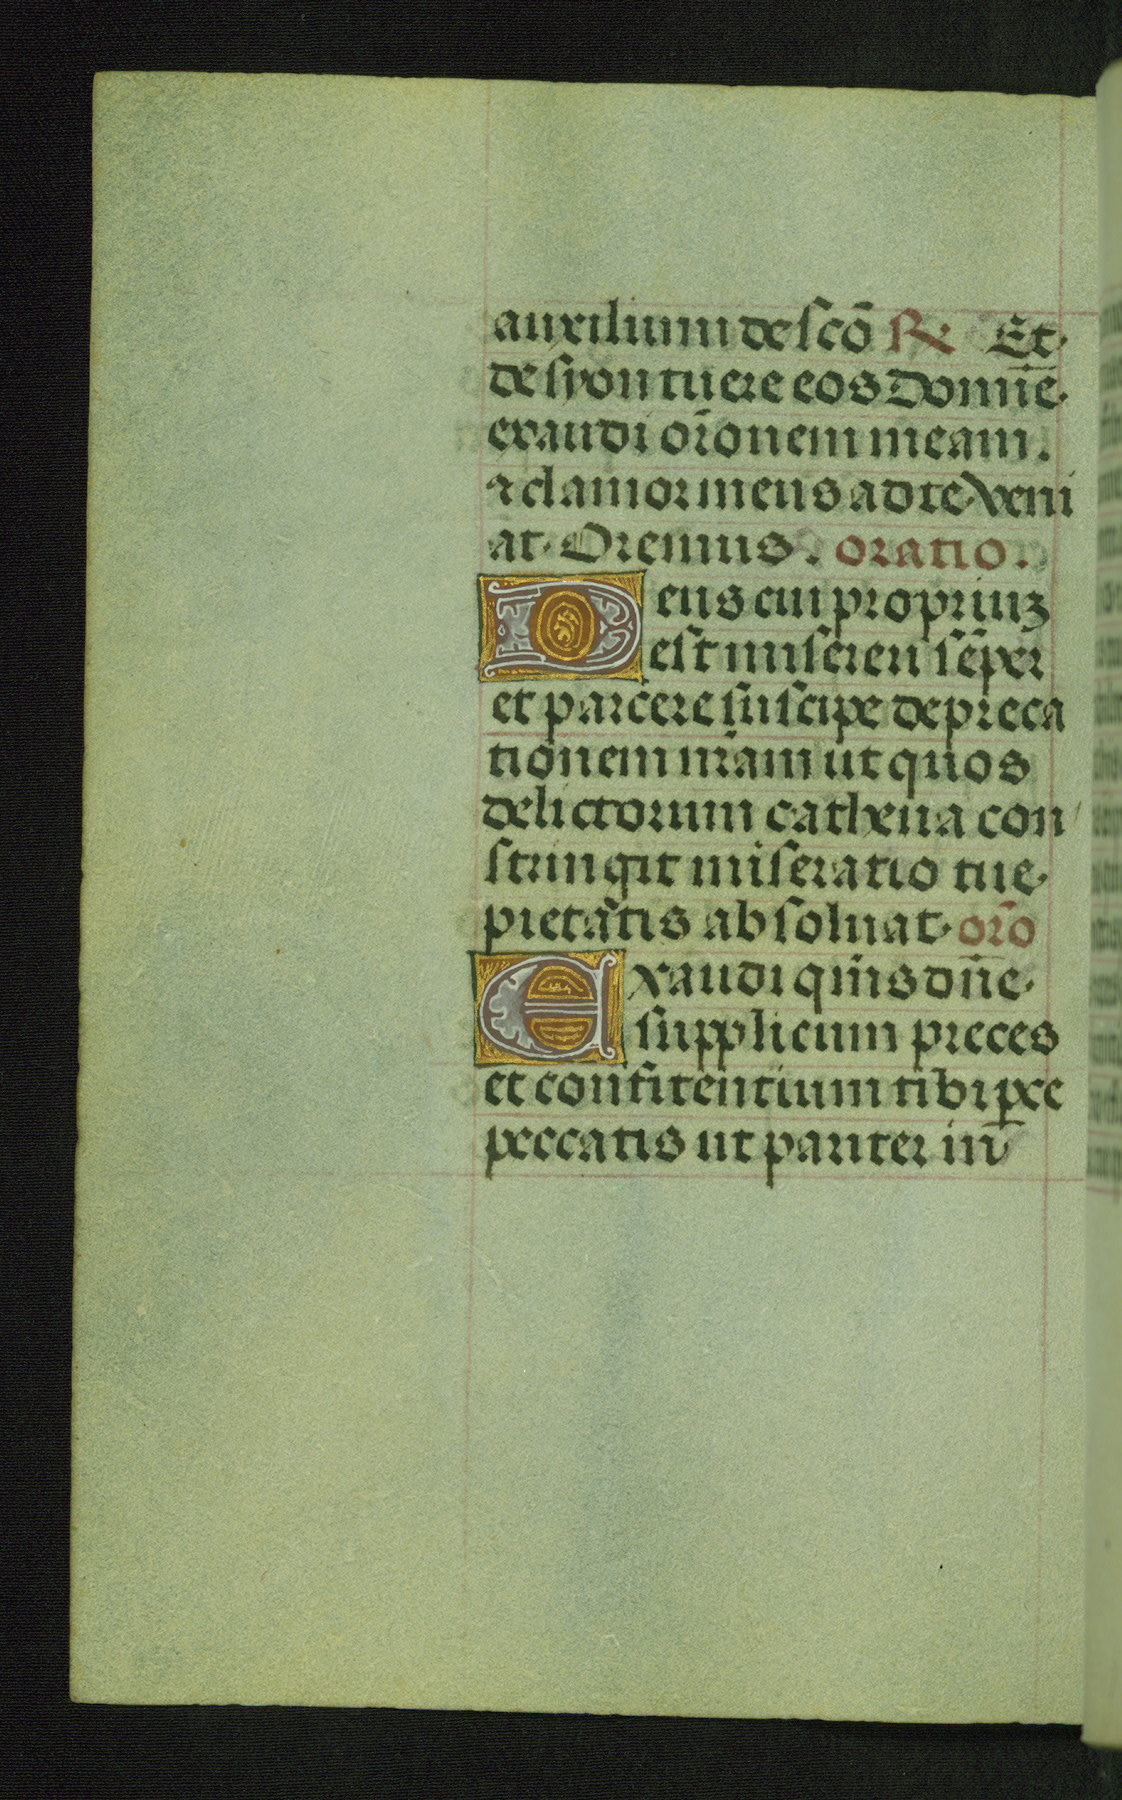 auxilium de scō R̷ Et
de syon tuere eos Domīe
exaudi or̄onem meam.
⁊ clamor meus ad te veni
at. Oremus. oratio.
Deus cui propriuꝫ
est misereri sēper
et parcere suscipe depreca
tionem nr̄am ut quos
delictorum cathena con
stringit miseratio tue
pietatis absoluat. or̄o
Exaudi q̄sis dn̄e
supplicum preces
et confitentium tibi pc
peccatis ut pariter in